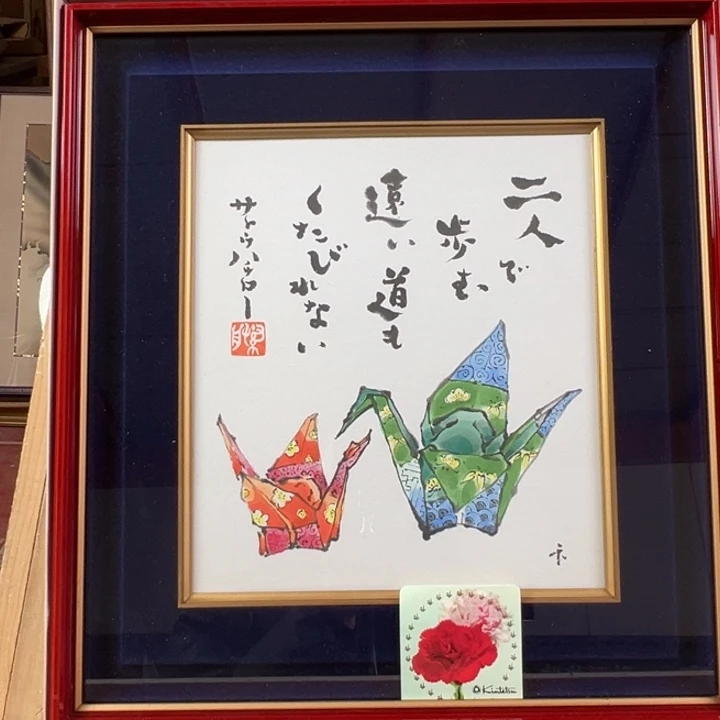 二人で
歩む
遠い道も
くたびれない
サトウハチロー
Kintetsu